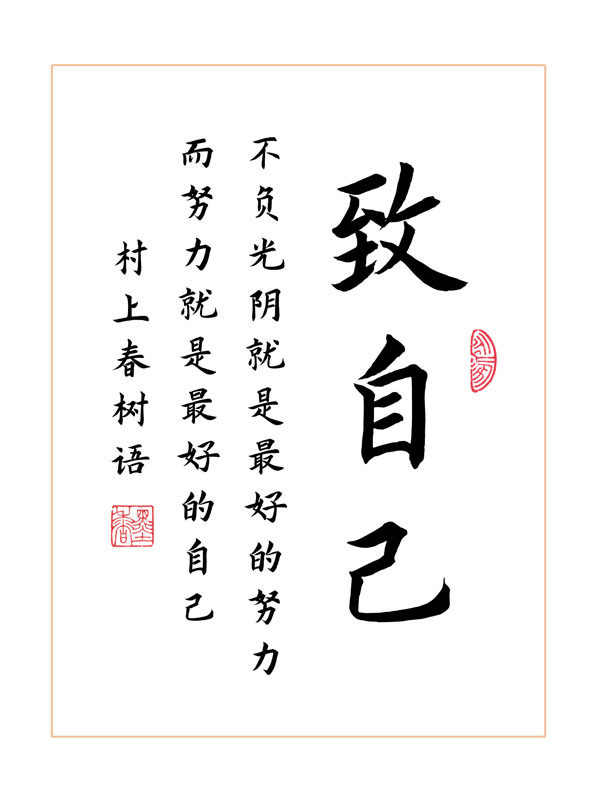 致自己
不负光阴就是最好的努力
而努力就是最好的自己
村上春树语
墨香